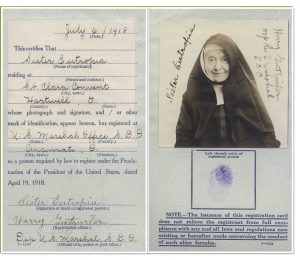 July 6, 1918
(Date.)
This certifies That
Sister Eutropia
(Name of registrant.)
residing at
(Street and number.)
St. Clara Convent
(City, town.)
Hartwell, O.
(County.) (State.)
whose photograph and signature, and / or other
mark of identification appear hereon, has registered at
U.S. Marshal Office S.D.O
Cincinnati, O.
(City, town.) (State.)
as a person required by law to register under the Proclamation
of the President of the United States, dated
April 19, 1918.
Sister Eutropia
(Signature or mark of registered person.)
Harry
Dep U.S. Marshal S.D.O.
Sister Eutropia
Harry
Dep U.S. Marshal
S.D.O
Left thumb print of
registered person.
NOTE—The issuance of this registration card
does not relieve the registrant from full compliance
with any and all laws and regulations now
existing or hereafter made concerning the conduct
of such alien females.